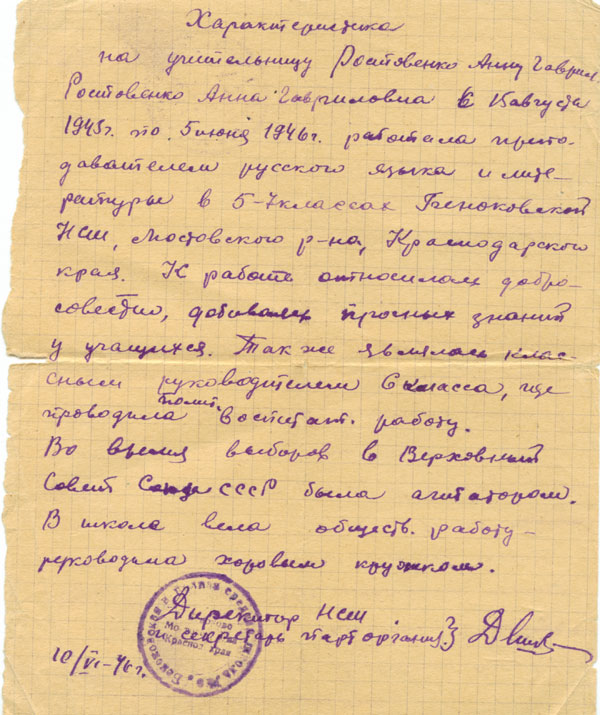 Характеристика
на учительницу Ростовенко Анну Гаврил.
Ростовенко Анна Гавриловна с 15 августа
1945г. по 5 июня 1946г. работала препо-
давателем русского языка и лите-
ратуры в 5-7 классах Беноковской
НСШ, Мостовского р-на, Краснодарского
края. К работе относилась добро-
совестно, добивалась прочных знаний
у учащихся. Так же являлась клас-
сным руководителем 6 класса, где
проводила полит. воспитат. работу.
Во время выборов в Верховный
Совет СССР была агитатором.
В школа вела обществ. работу -
руководила хоровым кружком.
Директор НСШ
секретарь парторганиз.
10/VI-46г.